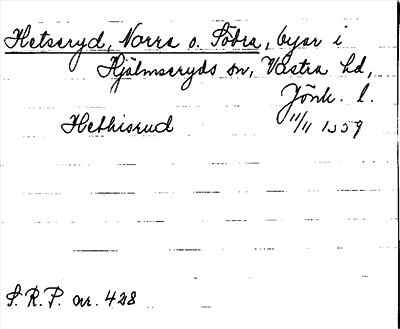 Hetseryd, Norra o. Södra, byar i
Hjälmseryds sn, Västra hd,
Jönk. l.
Hethisrud 11/11 1359
S.R.P. nr. 428